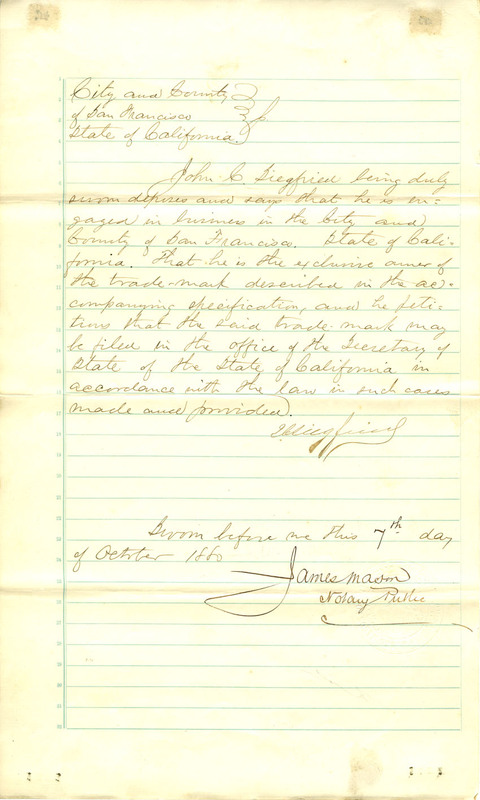 City and County
of San Francisco
State of California.
John C. Siegfried being duly
sworn deposes and says that he is en-
gaged in business in the City and
County of San Francisco. State of Cali-
fornia. That he is the exclusive owner of
the trade-mark described in the ac-
companying specification, and he peti-
tions that the said trade-mark may
be filed in the office of the Secretary of
State of the State of California in
accordance with the law in such cases
made and provided.
J C Siegfried
Sworn before me this 7th day
of October 1880
James Mason
Notary Public